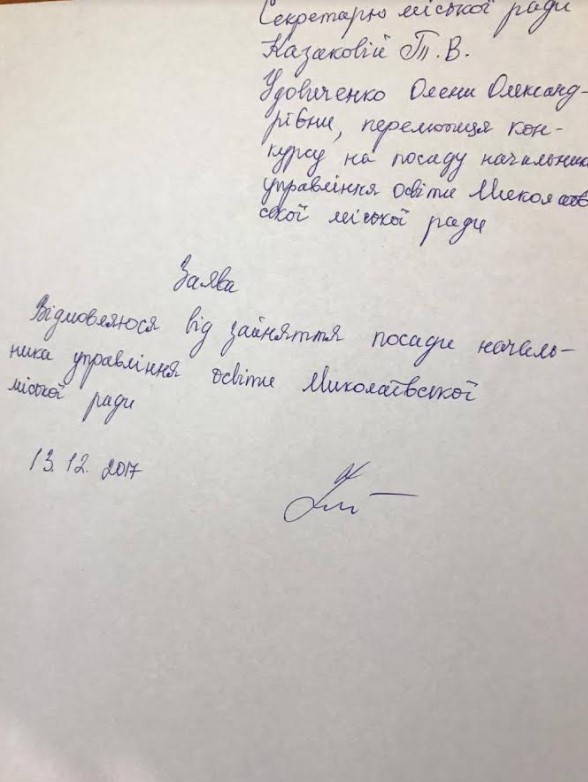 Секретарю міської ради
Казаковій Т. В.
Удовиченко Олени Олександ-
рівни, переможця кон-
курсу на посаду начальника
управління освіти Миколаїв-
ської міської ради
Заява
Відмовляюся від зайняття посади началь-
ника управління освіти Миколаївської
міської ради
13.12.2017